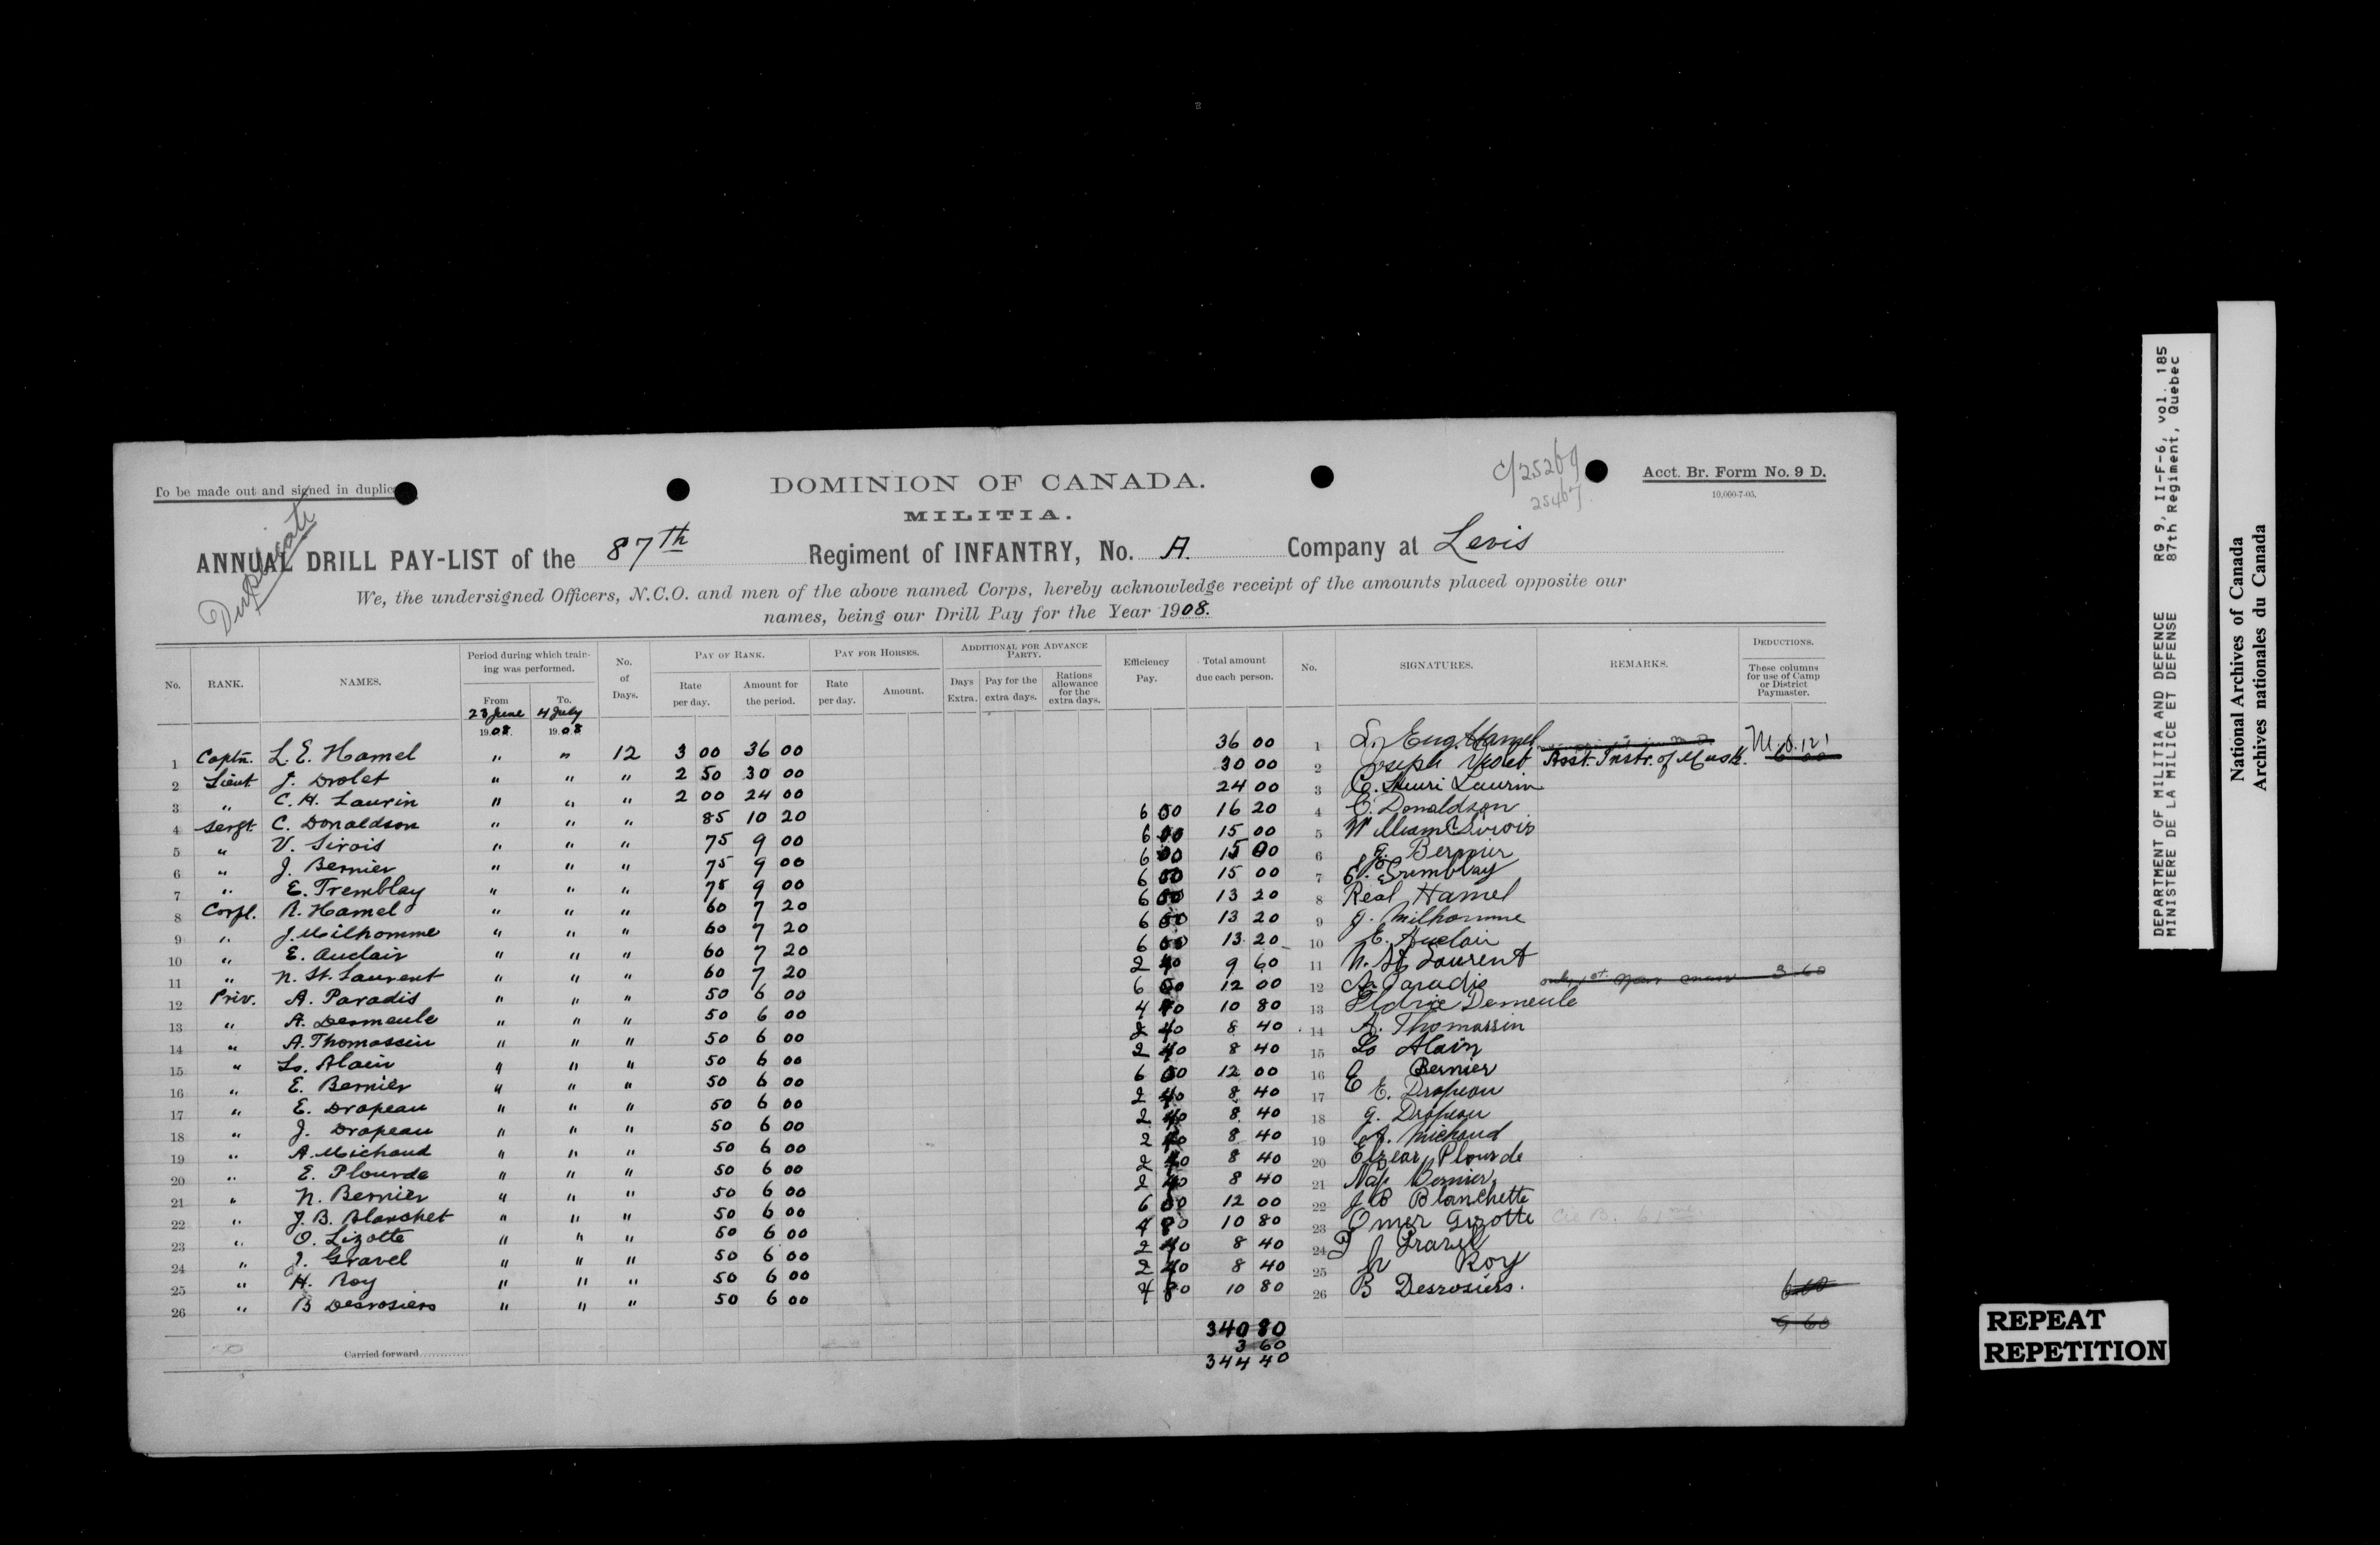 To be made out and signed in duplic
Duplicate
DOMINION OF CANADA.
MILITIA.
c/25269
25467
Acct. Br. Form No. 9 D.
10,000-7-05.
ANNUAL DRILL PAY-LIST of the 87th Regiment of INFANTRY, No. A. Company at Levis
We, the undersigned Officers, N.C.O. and men of the above named Corps, hereby acknowledge receipt of the amounts placed opposite our
names, being our Drill Pay for the Year 1908.
No. RANK. NAMES. Period during which training was performed. From 23 June 1908. To. 4 July 1908 No. of Days. PAY OF RANK. Rate per day. Amount for the period. PAY FOR HORSES. Rate per day. Amount. ADDITIONAL FOR ADVANCE PARTY. Days Extra. Pay for the extra days. Rations allowance for the extra days. Efficiency Pay. Total amount due each person. No. SIGNATURES. REMARKS. DEDUCTIONS. These columns for use of Camp or District Paymaster.
1 Captn. L. E. Hamel " " 12 3 00 36 00 36 00 1 Eug. Hamel
2 Lieut J. Drolet " " " 2 50 30 00 30 00 2 Joseph Drolet Asst. Instr. of Musk. M.D. 121 6 00
3 " C. H. Laurin " " " 2 00 24 00 24 00 3 C. Henri Laurin
4 Sergt. C. Donaldson " " " 85 10 20 6 00 16 20 4 C. Donaldson
5 " V. Sirois " " " 75 9 00 6 00 15 00 5 William Sirois
6 " J. Bernier " " " 75 9 00 6 00 15 00 6 J. Bernier
7 " E. Tremblay " " " 75 9 00 6 00 15 00 7 E. Tremblay
8 Corpl. R. Hamel " " " 60 7 20 6 00 13 20 8 Real Hamel
9 " J. Milhomme " " " 60 7 20 6 00 13 20 9 J. Milhomme
10 " E. Auclair " " " 60 7 20 6 00 13 20 10 E. Auclair
11 " N. St. Laurent " " " 60 7 20 2 40 9 60 11 N. St Laurent
12 Priv. A. Paradis " " " 50 6 00 6 00 12 00 12 A Paradis only 1st year man 3 60
13 " A. Demeule " " " 50 6 00 4 80 10 80 13 Eldrie Demeule
14 " A. Thomassin " " " 50 6 00 2 40 8 40 14 A. Thomassin
15 " Ls. Alain " " " 50 6 00 2 40 8 40 15 Ls Alain
16 " E. Bernier " " " 50 6 00 6 00 12 00 16 E Bernier
17 " E. Drapeau " " " 50 6 00 2 40 8 40 17 E. Drapeau
18 " J. Drapeau " " " 50 6 00 2 40 8 40 18 J. Drapeau
19 " A. Michaud " " " 50 6 00 2 40 8 40 19 A. Michaud
20 " E. Plourde " " " 50 6 00 2 40 8 40 20 Elzear Plourde
21 " N. Bernier " " " 50 6 00 2 40 8 40 21 Nap Bernier
22 " J. B. Blanchet " " " 50 6 00 6 00 12 00 22 J B Blanchette
23 " O. Lizotte " " " 50 6 00 4 80 10 80 23 Omer Lizotte Cie B. 61me
24 " J. Gravel " " " 50 6 00 2 40 8 40 24 J Gravel
25 " H. Roy " " " 50 6 00 2 40 8 40 25 h Roy
26 " B Desrosiers " " " 50 6 00 4 80 10 80 26 B Desrosiers.
6 00
340 80 9 60
3 60
Carried forward 344 40
DEPARTMENT OF MILITIA AND DEFENCE RG 9, II-F-6, vol. 185
MINISTERE DE LA MILICE ET DEFENSE 87th Regiment, Quebec
National Archives of Canada
Archives nationales du Canada
REPEAT
REPETITION